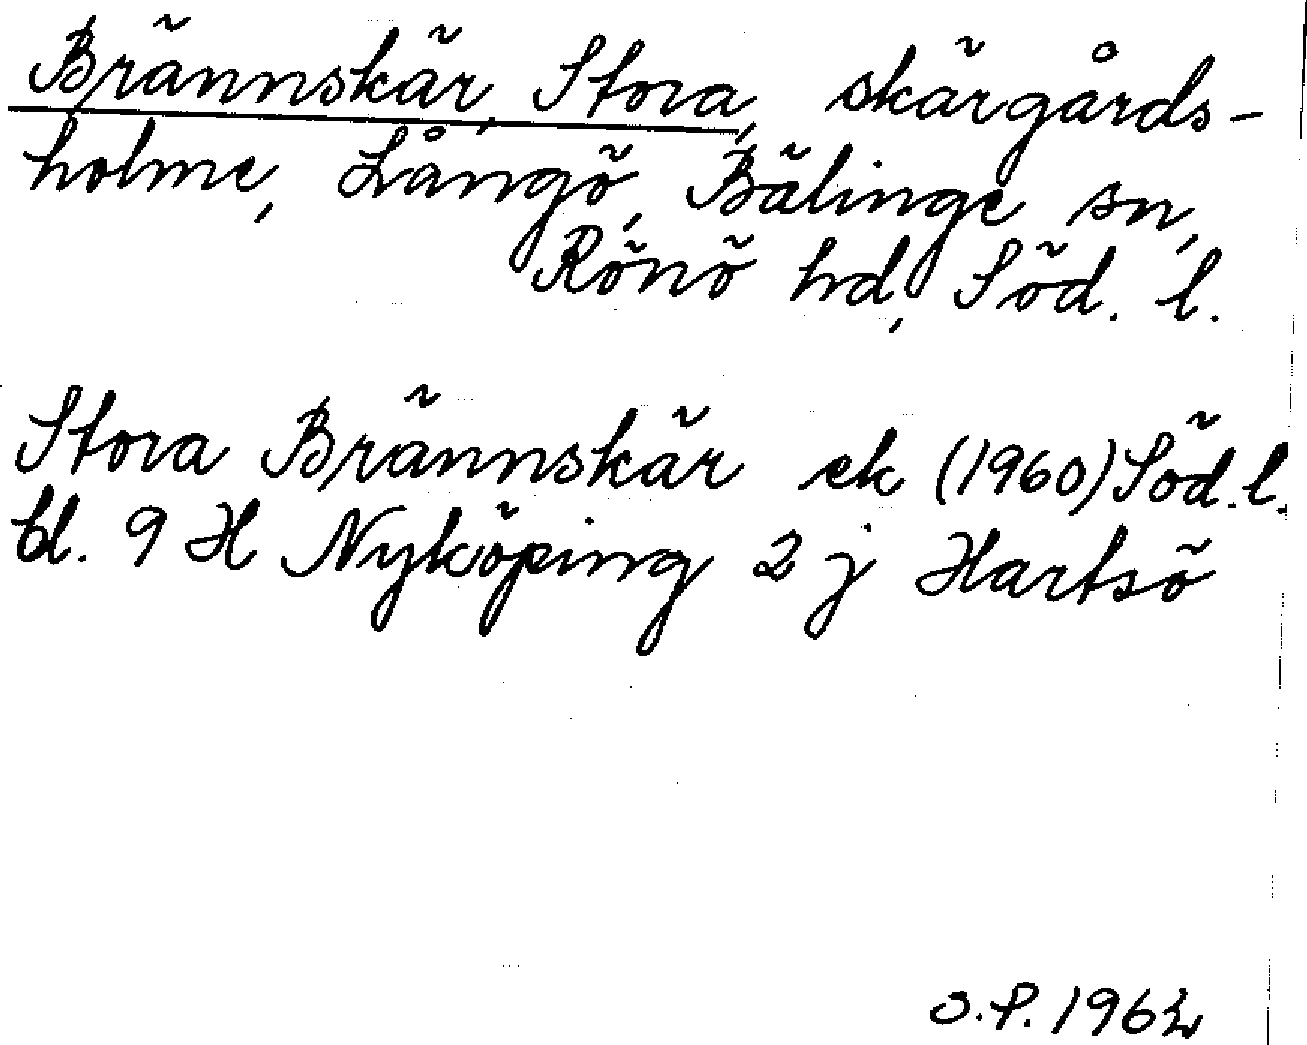 Brännskär, Stora, skärgårds-
holme, Långö, Bälinge sn,
Rönö hd, Söd. l.
Stora Brännskär ek (1960) Söd. l.
bl. 9 H Nyköping 2 j Hartsö
O.P. 1962